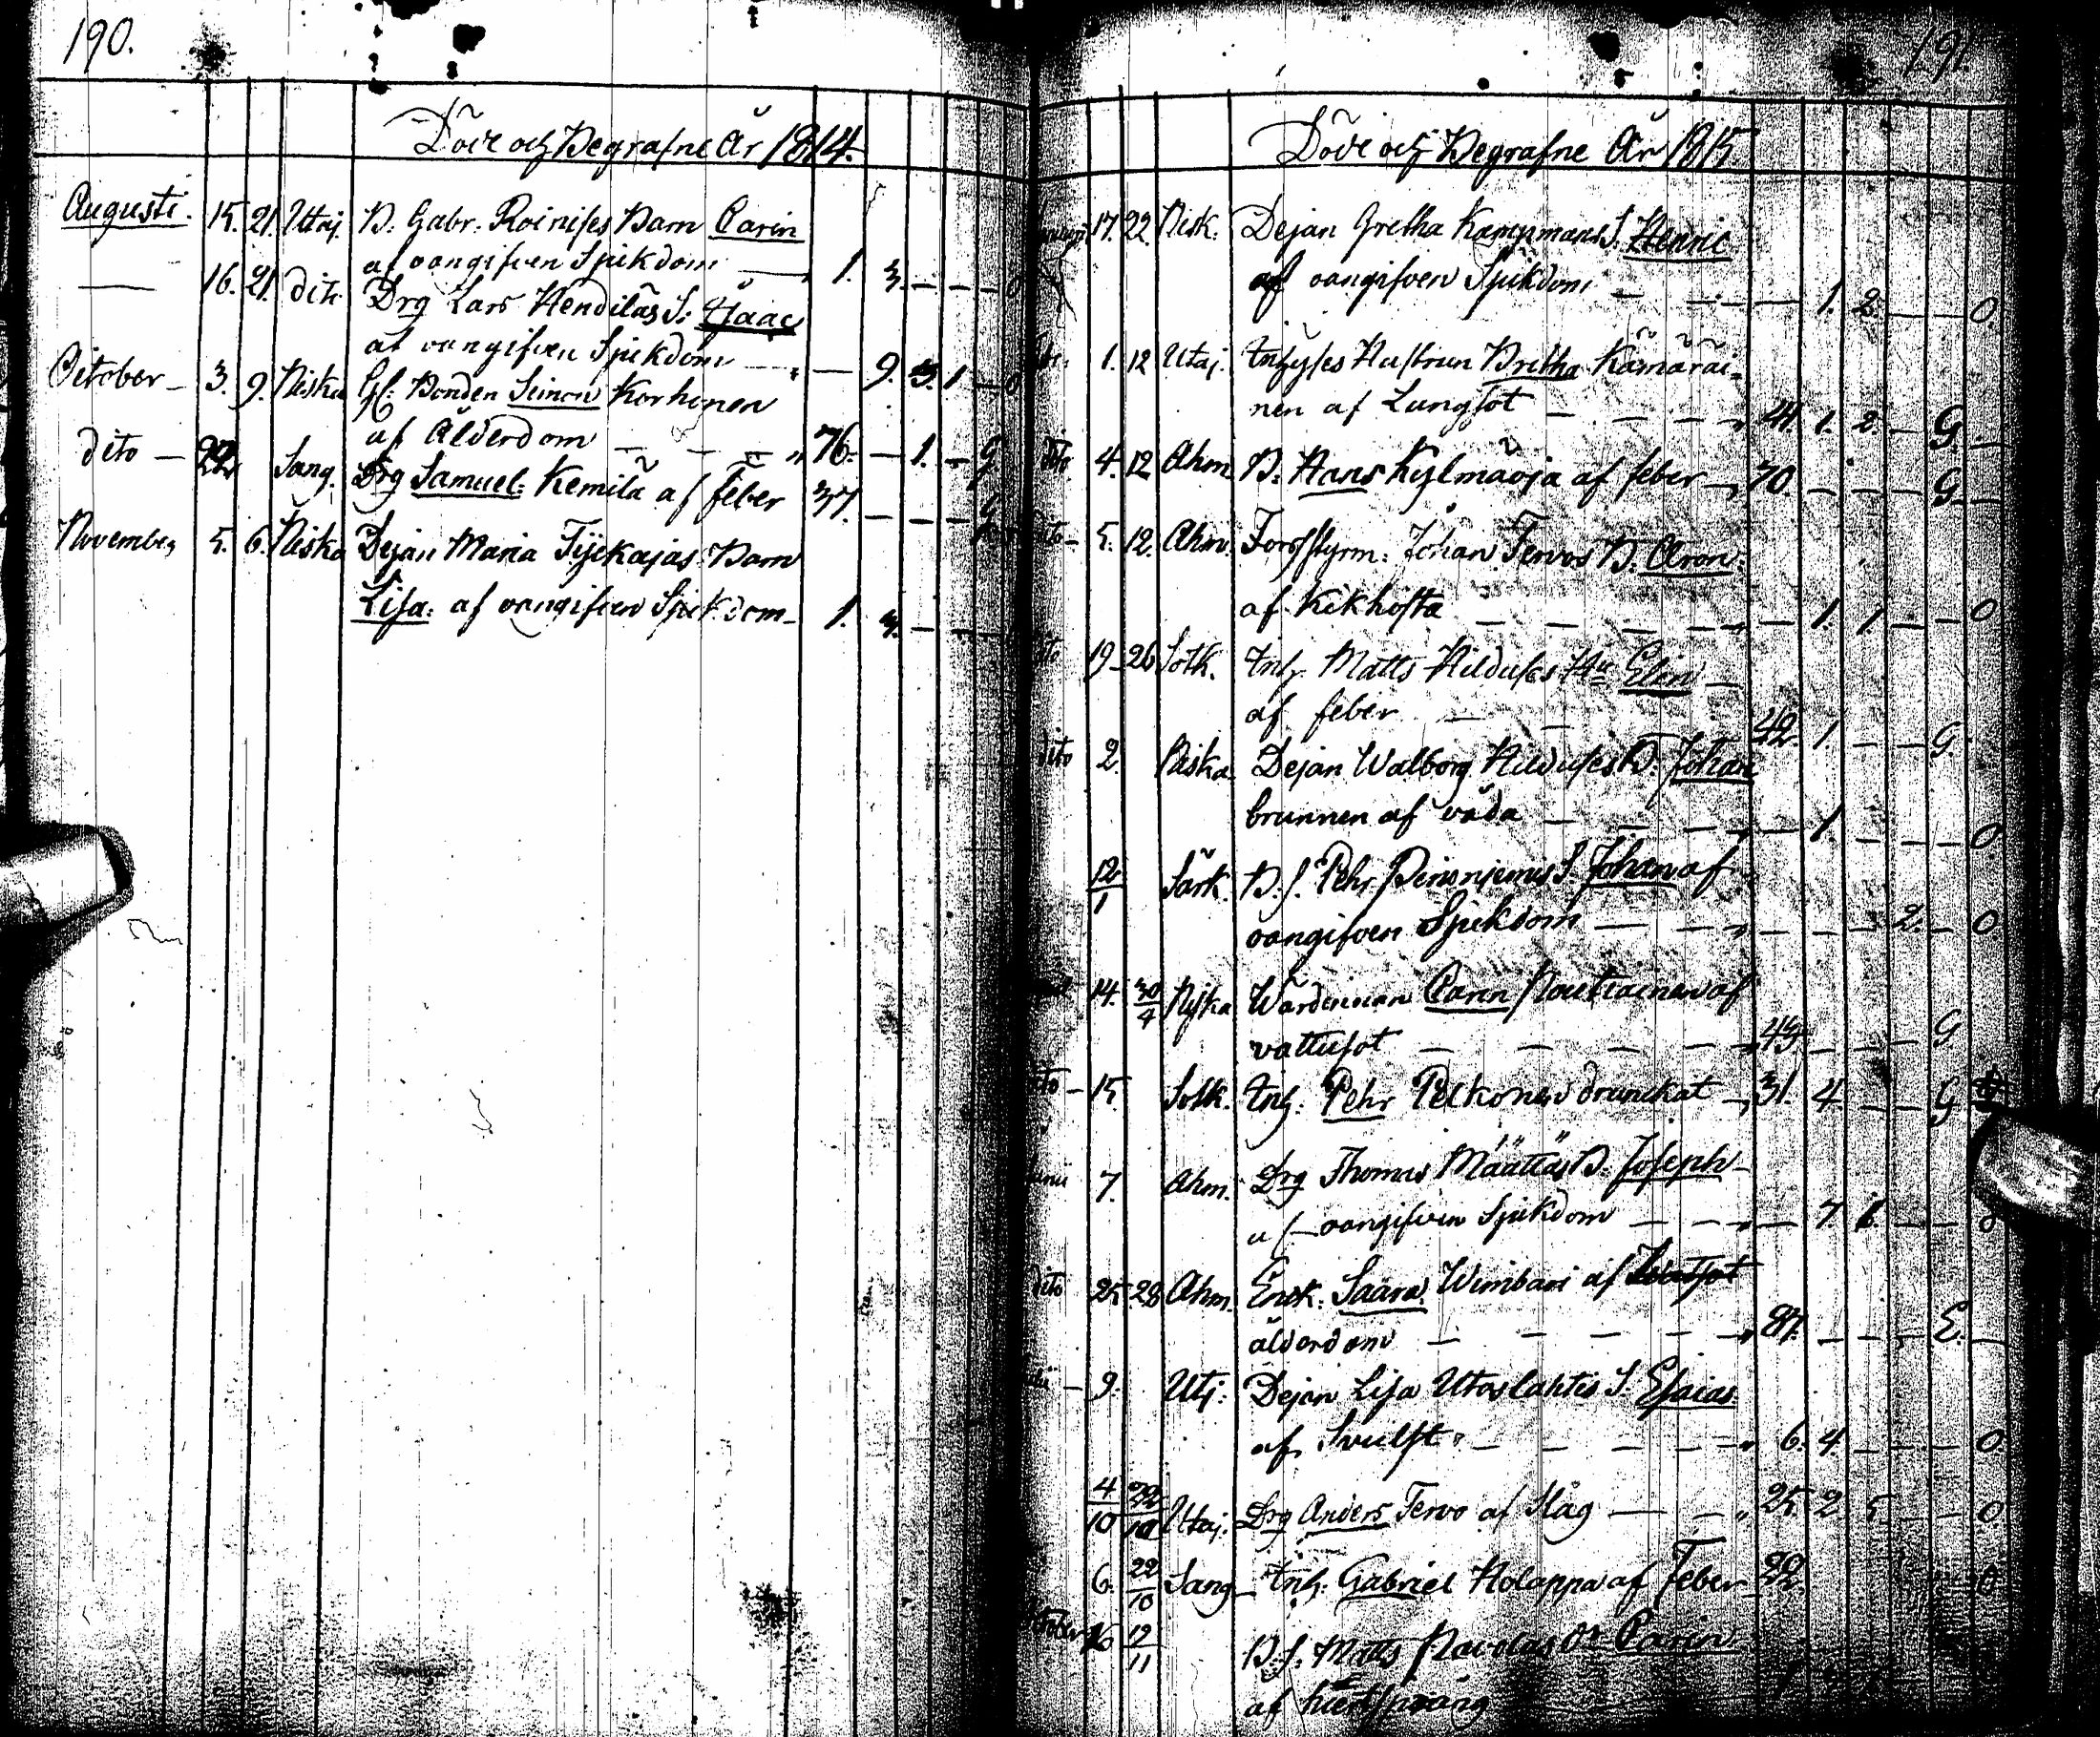 190.
Döde och Begrafne År 1814.
Augusti. 15. 21. Utaj. B. Gabr. Roinises Barn Carin
af oangifven Sjukdom 1. 3. — — — 0
— 16. 21. dito Drg Lars Hendiläs S. Isaac
af oangifven Sjukdom — 9. 3. 1 — 0
October — 3. 9. Niska Gl. Bonden Simon Korhonen
af Ålderdom — — — 76. — 1. — G
dito — 22. Sang. Drg Samuel Kemilä af feber 37. — — — G
November 5. 6. Niska Dejan Maria Tijekajas Barn
Lisa: af oangifven Sjukdom — 1. 3. — — —
191.
Döde och Begrafne År 1815
17. 22. Nisk. Dejan Gretha Kampmans S. Henric
af oangifven Sjukdom — — — 1. 2. — — 0.
1. 12 Utaj. Inhyses Hustrun Bretha Kämäräi-
nen af Lungsot — — — 41. 1. 2. — G. —
dito 4. 12 Ahm. B. Hans Kylmäoja af feber — 70. — — — G —
dito 5. 12. Ahm. Forsstyrm: Johan Tervos B. Aron
af Kikhosta — — — — 1. 1. — — 0
dito 19. 26 Sotk. Inh. Matts Hildus Hu Elin —
af feber — — 42. 1. — — G
dito 2. Niska. Dejan Walborg B. Johan
brunnen af våda — — — 1. — — — 0.
12/1 Särk. B. s. Pehr S. Johan af
oangifven Sjukdom — — — — — 2. — 0
14. 30/4 Niska Carin Noutiainen af
vattusot — — — 43. — — — G
dito — 15. Sotk. Inh: Pehr Pelkonen drunckat — 31. 4. — — G
Junii 7. Ahm. Drg Thomas Määttäs B. Joseph
af oangifven Sjukdom — — — 7. 1. — — 0
dito 25. 28 Ahm. Enck. Saara Wimbari af
ålderdom — — — — 87. — — — E. —
9. Utj: Dejan Lisa Utoslahtis S. Esaias
af Svulst — — — — 6. 4. — — — 0
4/10 22/10 Utaj. Drg Anders Tervo af Håg — — 25. 2 5. — — 0
6. 22/10 Sang — Inh. Gabriel Holappa af Feber 22. 0
October 16 12/11 B. s. Matts Dr Carin
af